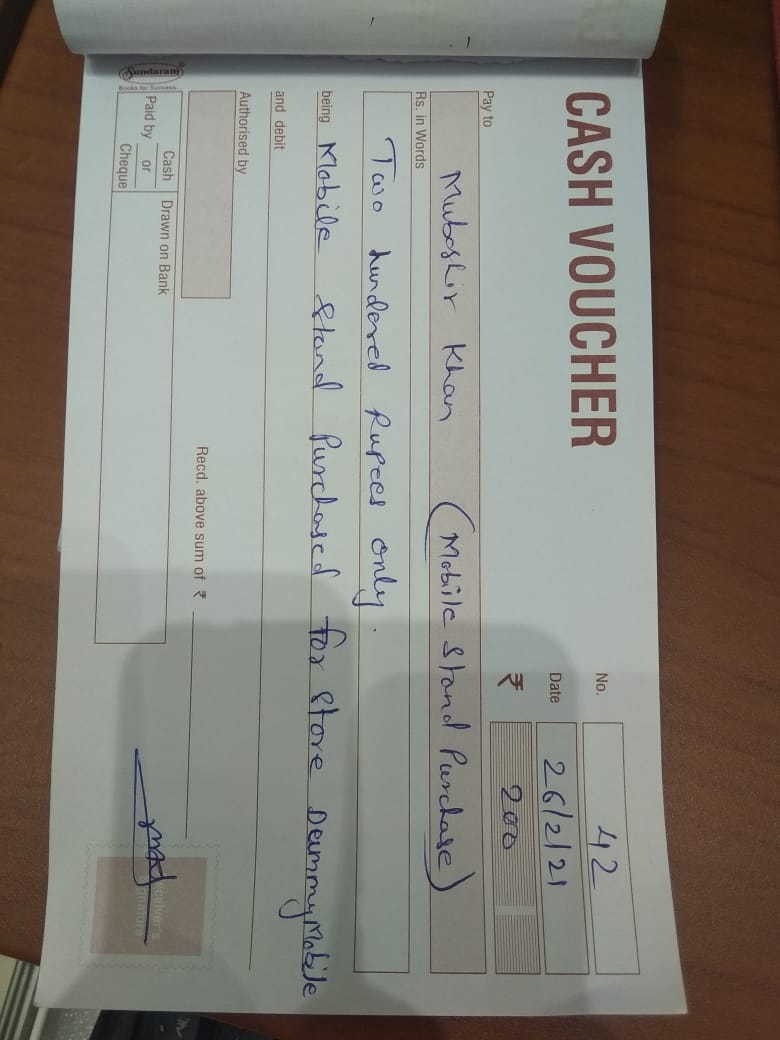 CASH VOUCHER
No. 42
Date 26/2/21
₹ 200
Pay to
Mubashir Khan (Mobile Stand Purchase)
Rs. in Words
Two hundered Rupees only.
being Mobile Stand Purchased for Store Dummy Mobile
and debit
Authorised by
Recd. above sum of ₹
Sundaram
Books for Success...
Paid by Cash or Cheque
Drawn on Bank
Receiver's
Signature